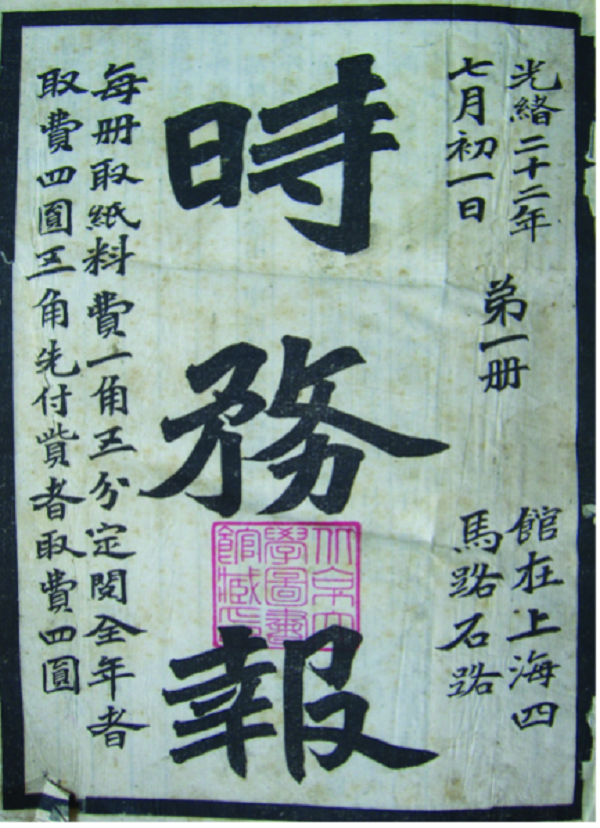 光緒二十二年
七月初一日
弟一册
館在上海四
馬路石路
時務報
北京大
學圖書
館藏
每册取紙料費一角五分定閱全年者
取費四圓五角先付貲者取費四圓